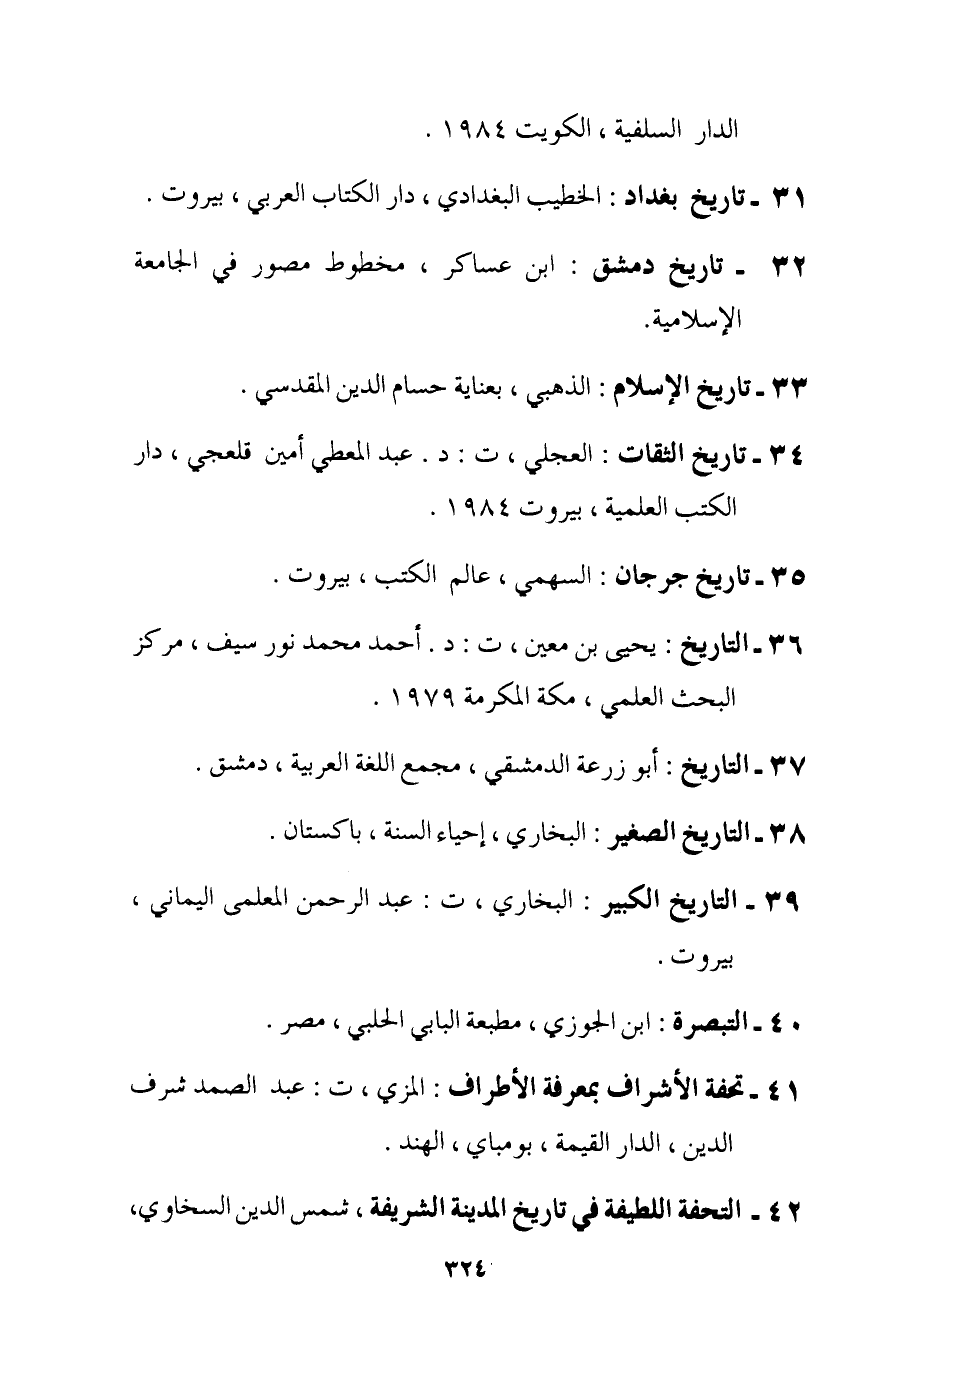 الدار السلفية ، الكويت ١٩٨٤ .
٣١ ـ تاريخ بغداد : الخطيب البغدادي ، دار الكتاب العربي ، بيروت .
٣٢ ـ تاريخ دمشق : ابن عساكر ، مخطوط مصور في الجامعة
الإسلامية.
٣٣ ـ تاريخ الإسلام : الذهبي ، بعناية حسام الدين المقدسي .
٣٤ ـ تاريخ الثقات : العجلي ، ت : د . عبد المعطي أمين قلعجي ، دار
الكتب العلمية ، بيروت ١٩٨٤ .
٣٥ ـ تاريخ جرجان : السهمي ، عالم الكتب ، بيروت .
٣٦ ـ التاريخ : يحيى بن معين ، ت : د . أحمد محمد نور سيف ، مركز
البحث العلمي ، مكة المكرمة ١٩٧٩ .
٣٧ ـ التاريخ : أبو زرعة الدمشقي ، مجمع اللغة العربية ، دمشق .
٣٨ ـ التاريخ الصغير : البخاري ، إحياء السنة ، باكستان .
٣٩ ـ التاريخ الكبير : البخاري ، ت : عبد الرحمن المعلمى اليماني ،
بيروت .
٤٠ ـ التبصرة : ابن الجوزي ، مطبعة البابي الحلبي ، مصر .
٤١ ـ تحفة الأشراف بمعرفة الأطراف : المزي ، ت : عبد الصمد شرف
الدين ، الدار القيمة ، بومباي ، الهند .
٤٢ ـ التحفة اللطيفة في تاريخ المدينة الشريفة ، شمس الدين السخاوي،
٣٢٤